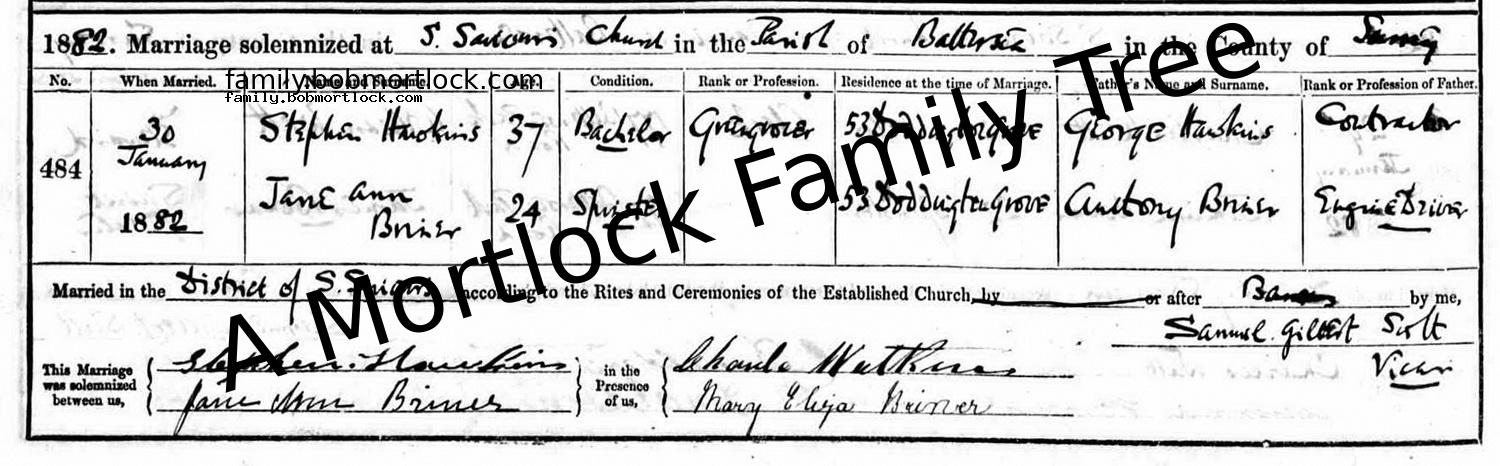 1882. Marriage solemnized at S. Saviours Church in the Parish of Battersea in the County of Surrey
No. When Married. Name and Surname. Age. Condition. Rank or Profession. Residence at the time of Marriage. Father's Name and Surname. Rank or Profession of Father.
family.bobmortlock.com
family.bobmortlock.com
484 30 January 1882
Stephen Hawkins 37 Bachelor Greengrocer 53 Doddington Grove George Hawkins Contractor
Jane Ann Briner 24 Spinster 53 Doddington Grove Anthony Briner Engine Driver
A Mortlock Family Tree
Married in the District of S. Saviours according to the Rites and Ceremonies of the Established Church, by or after Banns by me,
Samuel Gilbert Scott
Vicar
This Marriage was solemnized between us, Stephen Hawkins
Jane Ann Briner
in the Presence of us, Charles Watkins
Mary Eliza Briner